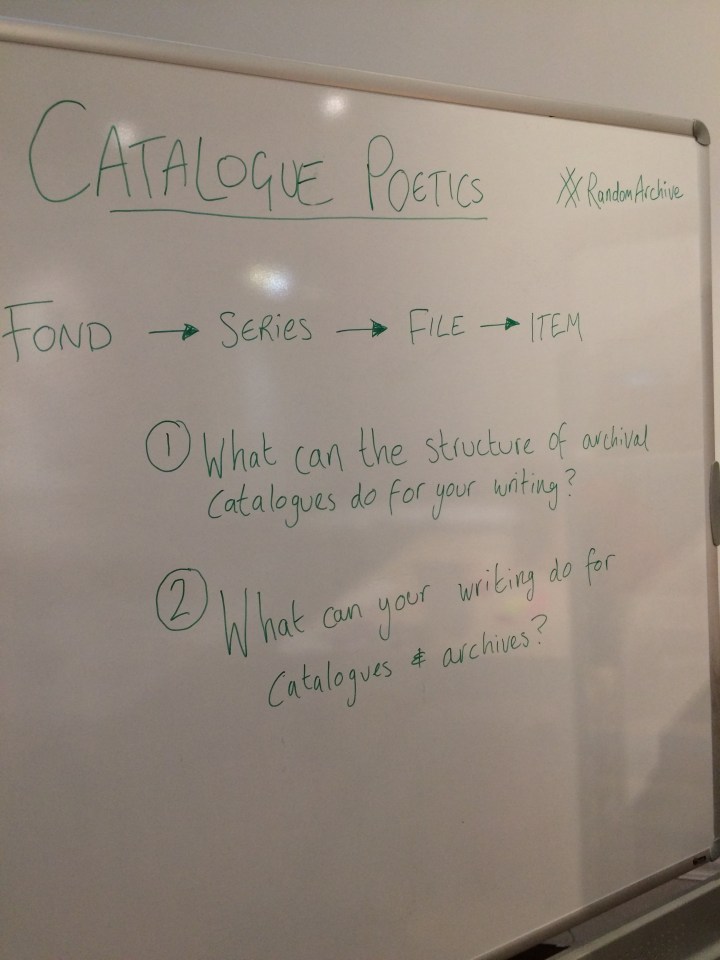 CATALOGUE POETICS
#RandomArchive
FOND → SERIES → FILE → ITEM
① What can the structure of archival
catalogues do for your writing?
② What can your writing do for
catalogues & archives?